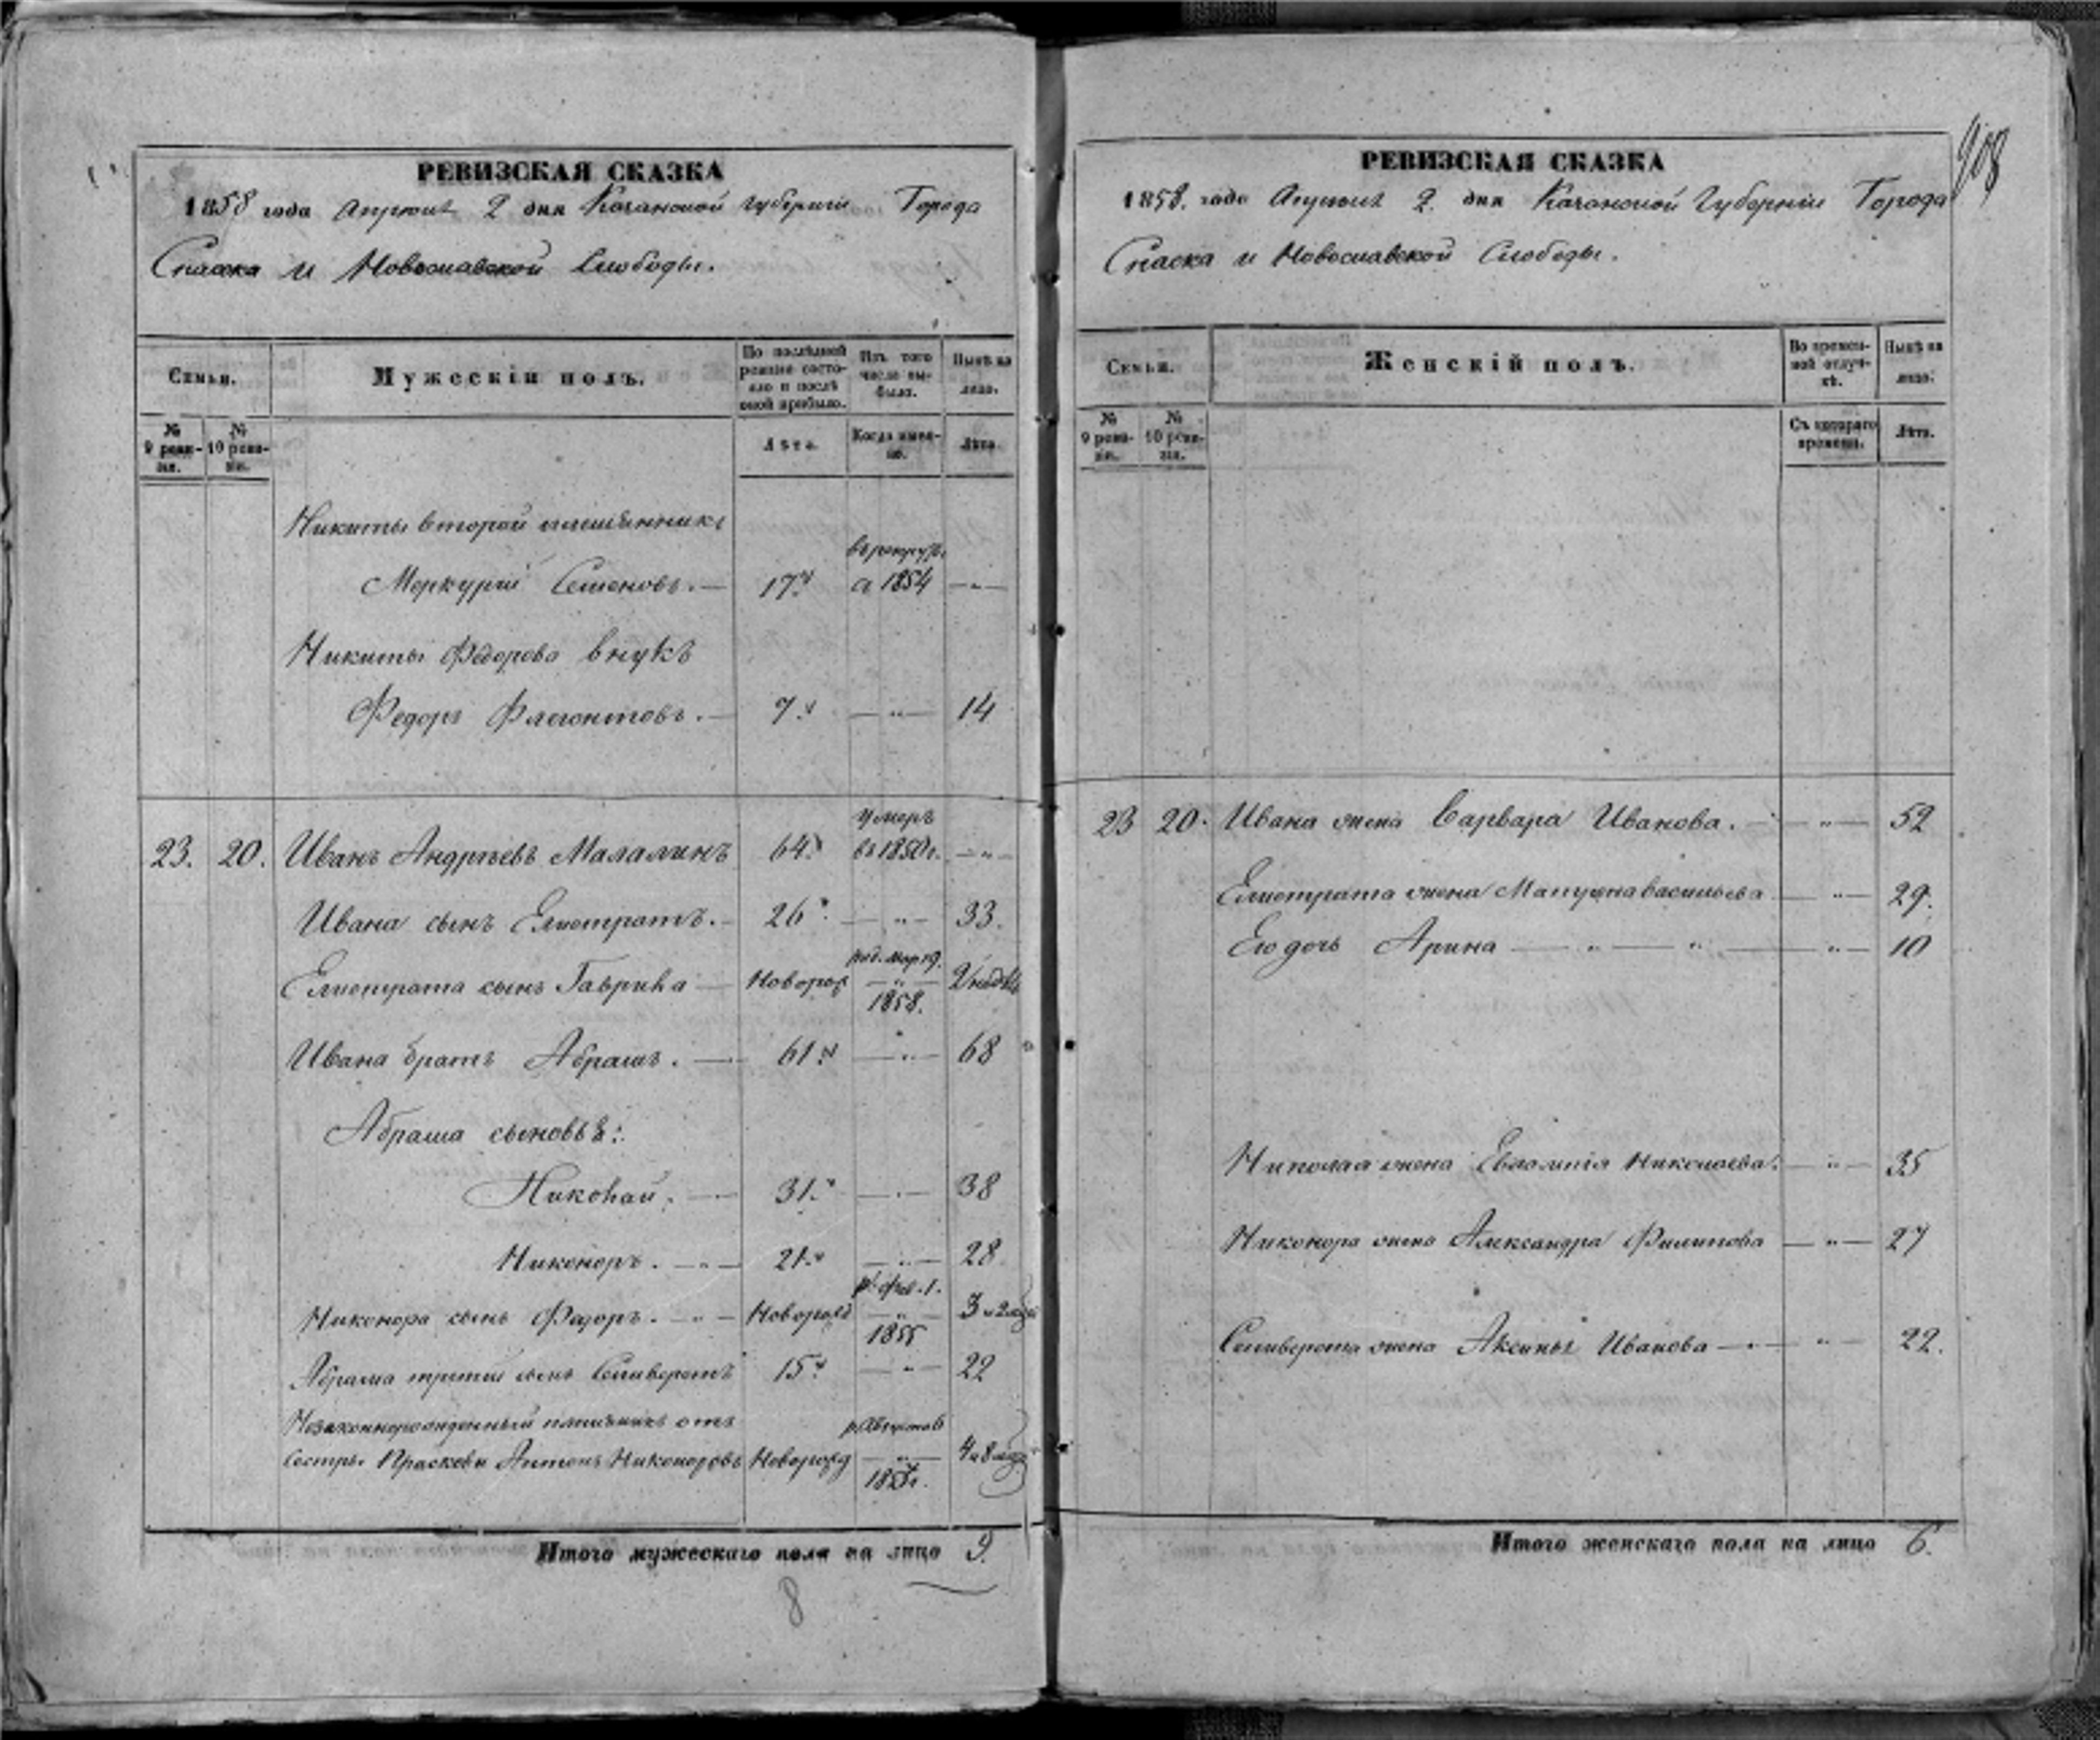 РЕВИЗСКАЯ СКАЗКА
1858 года Апреля 2 дня Казанской губернии Города
Спаска и Новоспаской Слободы.
Семьи.
Мужескій полъ.
По послѣдней ревизіи состояло и послѣ оной прибыло.
Изъ того числа выбыло.
Нынѣ на лицо.
№ 9 ревизіи.
№ 10 ревизіи.
Лѣта.
Когда именно.
Лѣта.
Никиты второй племянникъ
въ рекрут.
Меркурій Семеновъ. 17 а 1854 — " —
Никиты Федорова внукъ
Федоръ Флегонтовъ. 7 — " — 14
умеръ
23. 20. Иванъ Андреевъ Маламинъ 64 въ 1850 г. — " —
Ивана сынъ Елистратъ. 26 — " — 33.
род. мар 19.
Елистрата сынъ Гаврила — Новорож — " — 2 недѣл
1858.
Ивана братъ Абрамъ. — 61 — " — 68
Абрама сыновья:
Николай. — 31. — " — 38
Никоноръ. — " — 21. — " — 28
р. фев. 1.
Никонора сынъ Федоръ. — " — Новорожд — " — 3 и 2 мѣс
1855
Абрама третій сынъ Селиверстъ 15 — " 22
Незаконнорожденный племянникъ отъ
р. Августа 6
сестры Прасковьи Антонъ Никоноровъ Новорожд — " — 4 и 8 мѣс
Итого мужескаго пола на лицо 9.
8
908
РЕВИЗСКАЯ СКАЗКА
1858. года Апреля 2. дня Казанской Губерніи Города
Спаска и Новоспаской Слободы.
Семьи.
Женскій полъ.
Во временной отлучкѣ.
Нынѣ на лицо.
№ 9 ревизіи.
№ 10 ревизіи.
Съ котораго времени.
Лѣта.
23 20. Ивана жена Варвара Иванова. — " — 52
Елистрата жена Матрена Васильева — " — 29.
Его дочь Арина — " — " — " — 10
Николая жена Николаева. — " — 35
Никонора жена Александра Филипова — " — 27
Селиверста жена Аксинья Иванова — " — " — 22.
Итого женскаго пола на лицо 6.